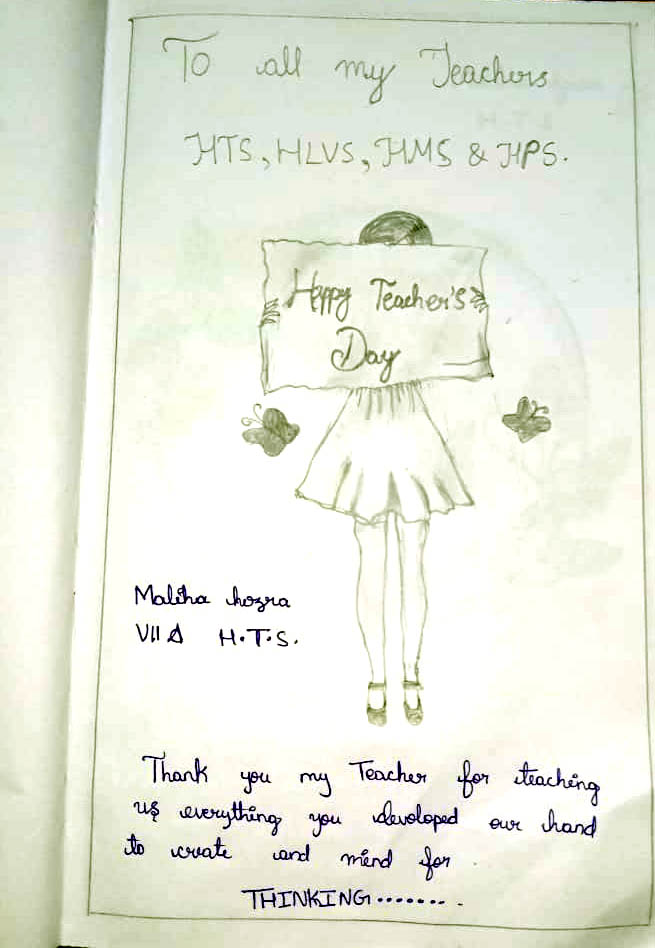 To all my Teachers
HTS, HLVS, HMS & HPS.
Happy Teacher's
Day
Maliha
VII A H.T.S.
Thank you my Teacher for teaching
us everything you devoloped our hand
to create and mind for
THINKING........